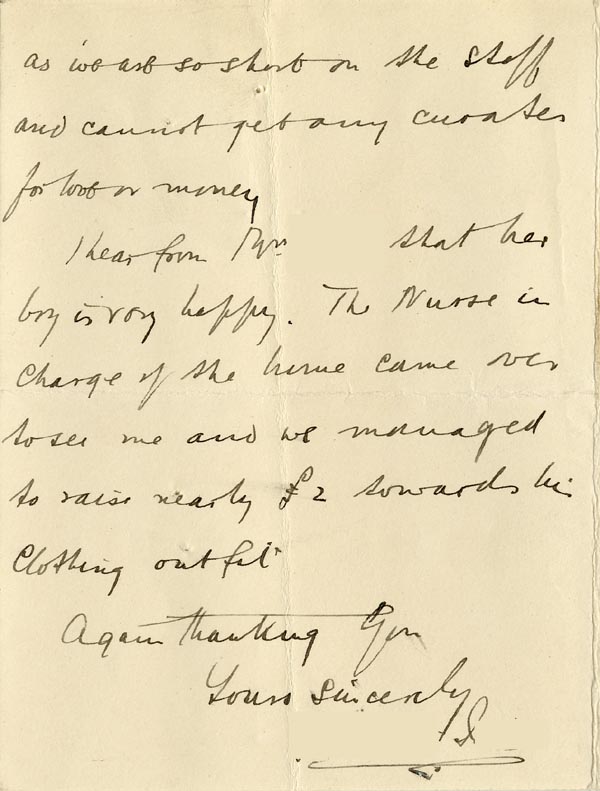 as we are so short on the staff
and cannot get any curates
for love or money
I hear from Mrs that her
boy is very happy. The Nurse in
charge of the home came over
to see me and we managed
to raise nearly £2 towards his
Clothing outfit
Again thanking You
Yours sincerely